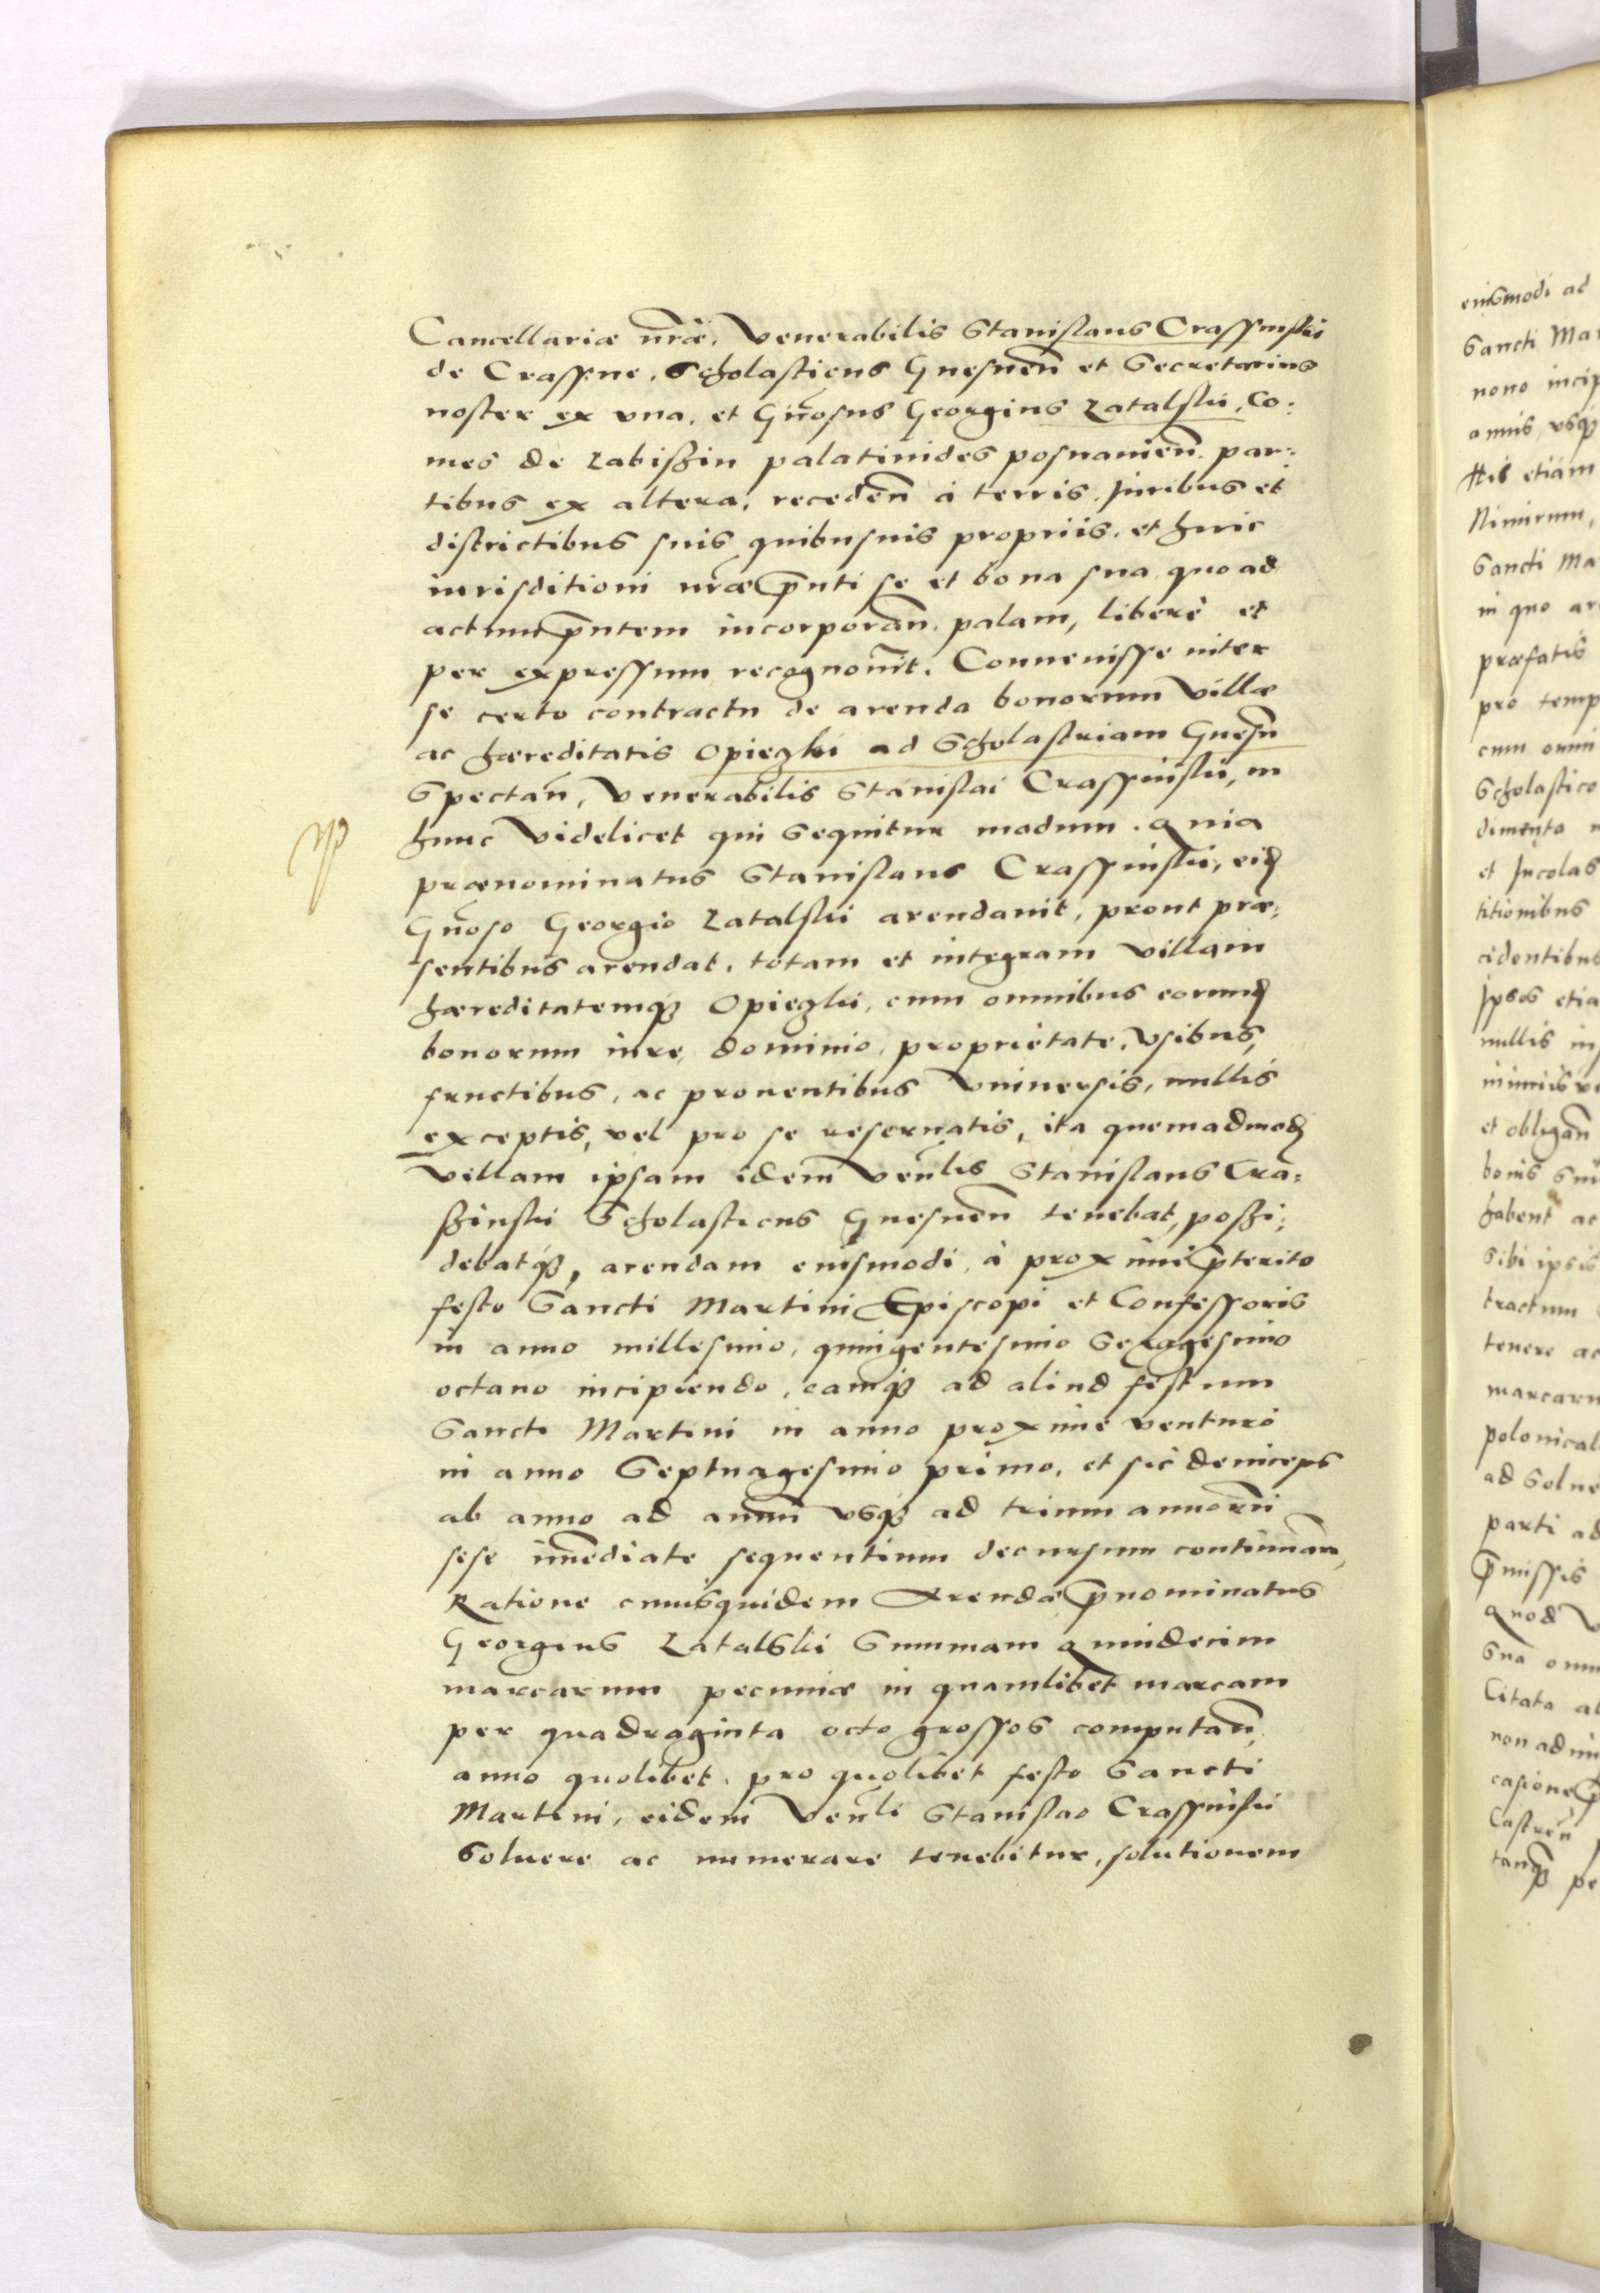 Cancellariæ nr̃æ. Venerabilis Stanislaus Crassinski
de Crassne, Scholasticus Gnesnen̄ et Secretarius
noster ex vna, et Gn̄osus Georgius Latalski, Co:
mes de Labiszin palatinides posnanien̄. par:
tibus ex altera, receden̄ á terris, Juribus et
districtibus suis quibusuis propriis, et huic
iurisditioni nr̃æ p̄nti se et bona sua quo ad
actum p̄ntem incorporan̄. palam, liberè et
per expressum recognouit. Conuenisse inter
se certo contractu de arenda bonorum Villæ
ac hæreditatis Opiezki ad Scholastriam Gnesn̄
Spectan̄, Venerabilis Stanislai Crassinski, in
hunc Videlicet qui Sequitur modum. Quia
prænominatus Stanislaus Crassinski, eid
Gn̄oso Georgio Latalski arendauit, prout præ:
sentibus arendat, totam et integram Villam
hæreditatemq Opiezki, cum omnibus eorund
bonorum iure, dominio, proprietate, Vsibus,
fructibus, ac prouentibus Vniuersis, nullis
exceptis, vel pro se reseruatis, ita quemadmod
Villam ipsam idem Ven̄lis Stanislaus Cra:
szinski Scholasticus Gnesnen̄ tenebat, possi:
debatq, arendam eiusmodi, á proximè p̄terito
festo Sancti Martini Episcopi et Confessoris
in anno millesimo, quingentesimo Sexagesimo
octauo incipiendo, eamq ad aliud festum
Sancti Martini in anno proximè venturo
in anno Septuagesimo primo, et sic deinceps
ab anno ad annū vsq ad trium annorū
sese im̄ediate sequentium decursum continuan̄,
Ratione cuiusquidem Arendæ p̄nominatus
Georgius Latalski Summam Quindecim
marcarum pecuniæ in quamlibet marcam
per quadraginta octo grossos computan̄,
anno quolibet, pro quolibet festo Sancti
Martini, eidem Ven̄li Stanislao Crassinski
Soluere ac numerare tenebitur, solutionem
eiusmodi ad
Sancti Mar
nono incip
annis, vsq
etiam
Nimirum,
Sancti Ma
in quo ar
præfatis
pro temp
cum omni
Scholastico
dimento
et Incolas
titionibus
cidentibus
Ipsos etia
nullis
et obligan̄
bonis
habent ac
Sibi ipsis
tractum
tenere ac
marcaru
polonical
ad Solue
parti ad
p̄missis
Quod
Sua omn
Citata
non adim
casione
Castren̄
tanq pe